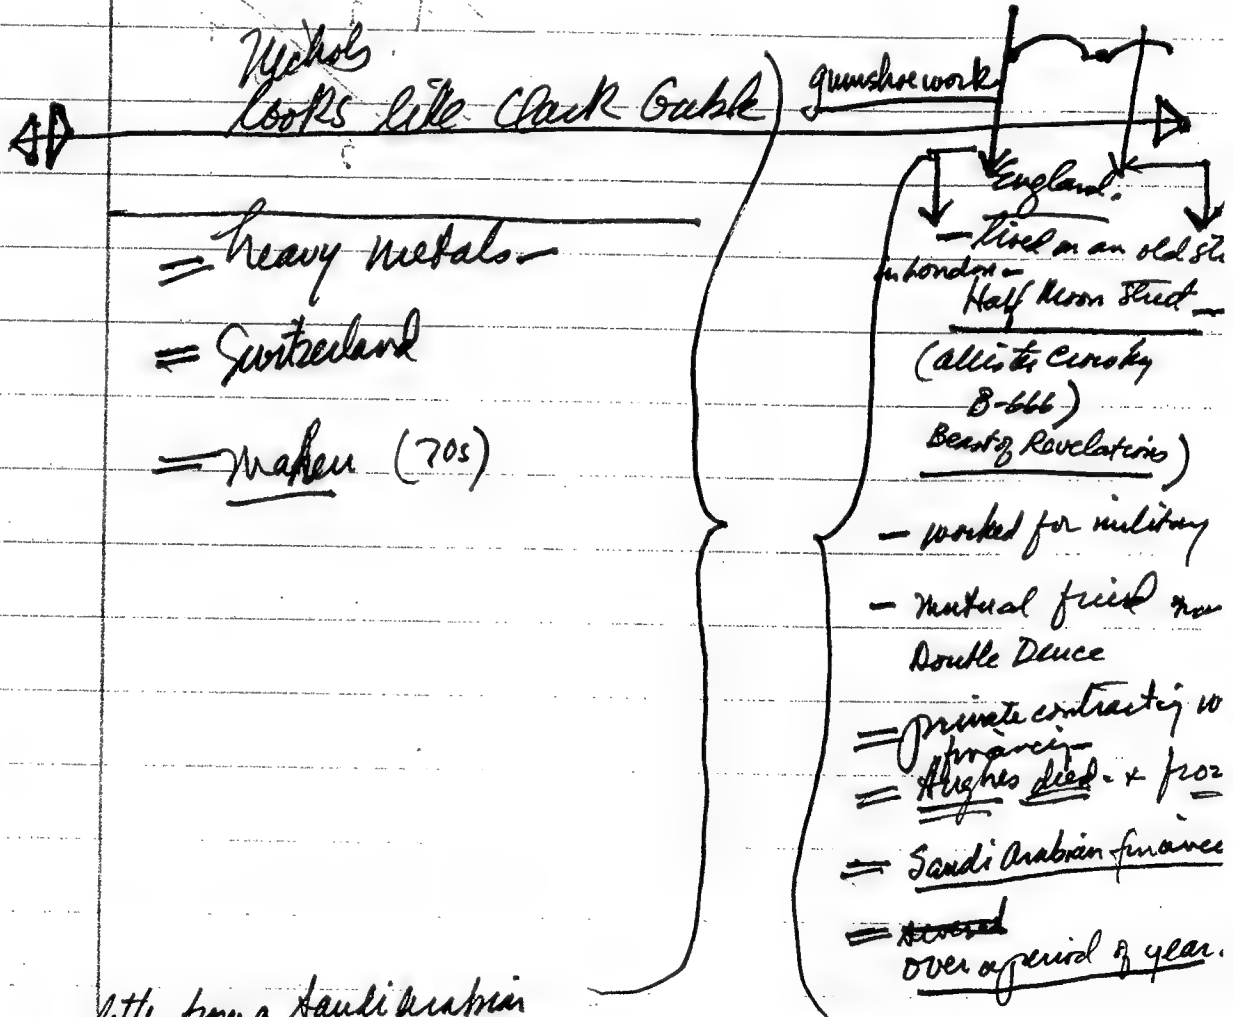 Nichols
looks like Clark Gable
heavy metals
Switzerland
(70s)
letter from a Saudi Arabian
gumshoe work
England.
- lived on an old
in London -
Half Moon Street -
(Allister Crowley
B-666)
Beast of Revelations)
- worked for military
- mutual friend
Double Deuce
= private contracting
financing
= Hughes died. +
= Saudi Arabian finance
= several
over a period of year.